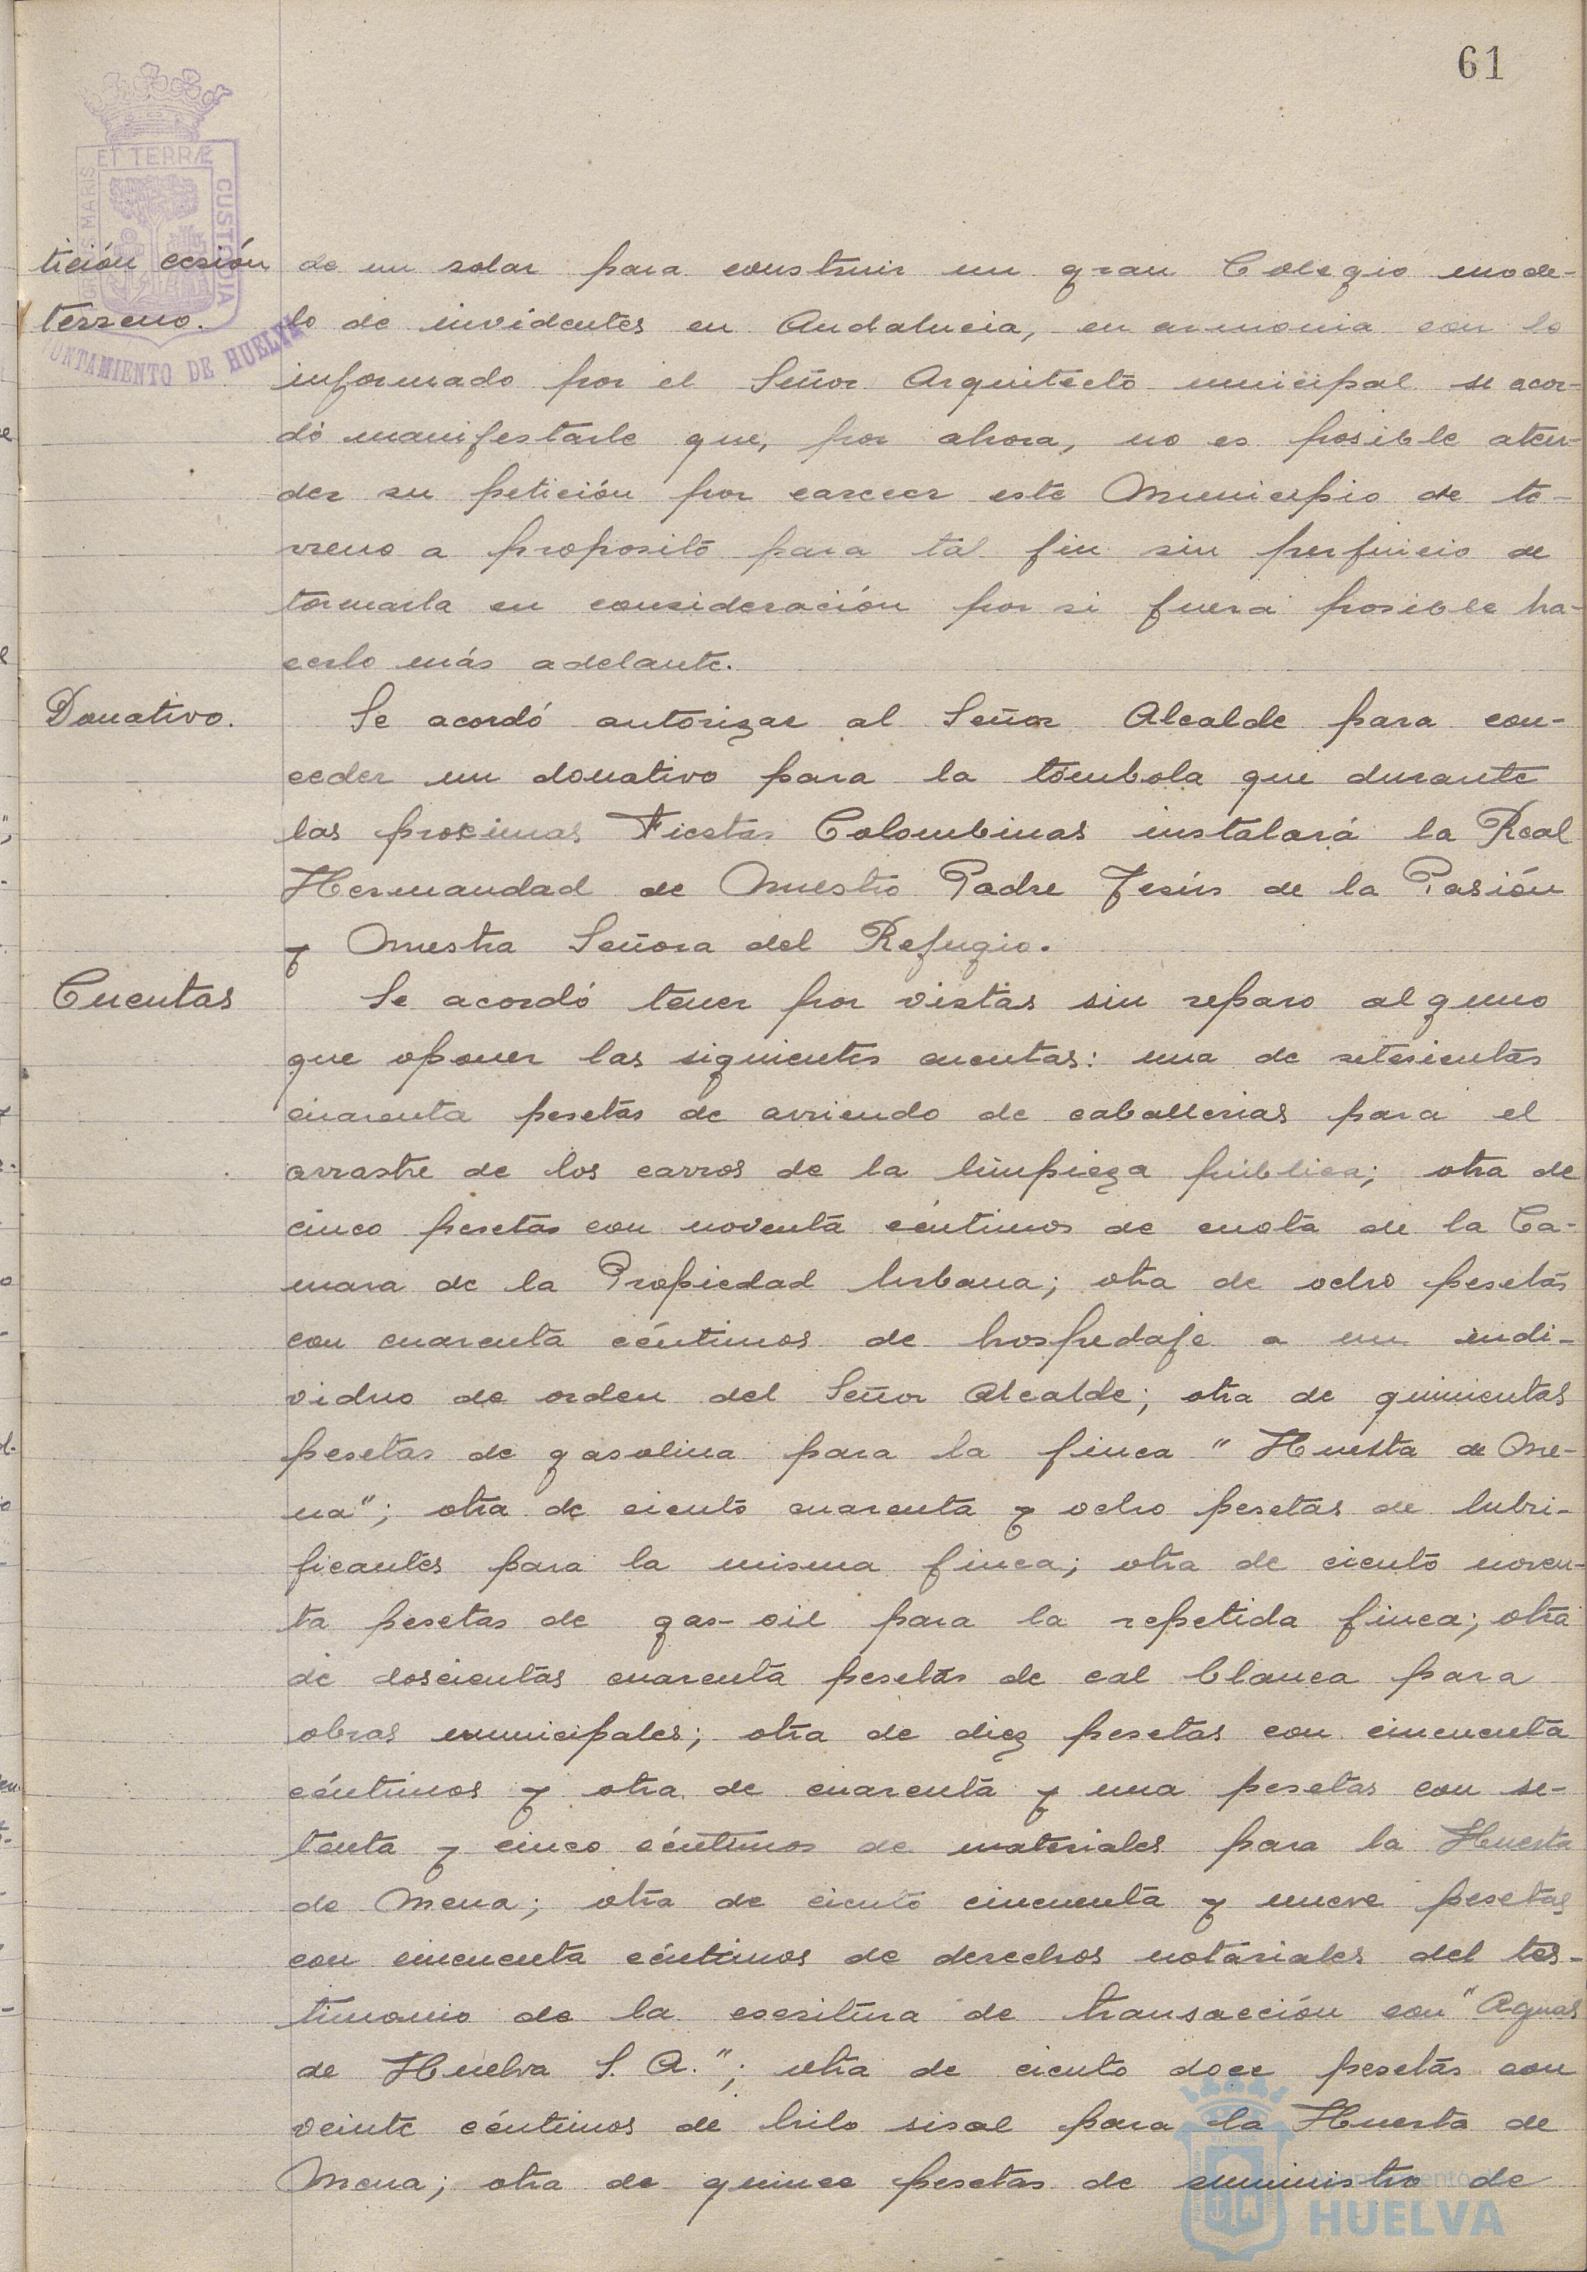 61
ET TERRÆ
MARIS
CUSTODIA
AYUNTAMIENTO DE HUELVA
tición cesión
terreno.
de un solar para construir un gran Colegio mode-
lo de invidentes en Andalucia, en armonia con lo
informado por el Señor Arquitecto municipal se acor-
dó manifestarle que, por ahora, no es posible aten-
der su petición por carecer este Municipio de te-
rreno a proposito para tal fin sin perjuicio de
tormarla en consideración por si fuera posible ha-
cerlo más adelante.
Donativo.
Se acordó autorizar al Señor Alcalde para con-
ceder un donativo para la tómbola que durante
las proximas Fiestas Colombinas instalará la Real
Hermandad de Nuestro Padre Jesús de la Pasión
y Nuestra Señora del Refugio.
Cuentas
Se acordó tener por vistas sin reparo alguno
que oponer las siguientes cuentas: una de setecientas
cuarenta pesetas de arriendo de caballerias para el
arrastre de los carros de la limpieza pública; otra de
cinco pesetas con noventa céntimos de cuota de la Ca-
mara de la Propiedad Urbana; otra de ocho pesetas
con cuarenta céntimos de hospedaje a un indi-
viduo de orden del Señor Alcalde; otra de quinientas
pesetas de gasolina para la finca "Huerta de Me-
na"; otra de ciento cuarenta y ocho pesetas de lubri-
ficantes para la misma finca; otra de ciento noven-
ta pesetas de gas-oil para la repetida finca; otra
de doscientas cuarenta pesetas de cal blanca para
obras municipales; otra de diez pesetas con cincuenta
céntimos y otra de cuarenta y una pesetas con se-
tenta y cinco céntimos de materiales para la Huerta
de Mena; otra de ciento cincuenta y nueve pesetas
con cincuenta céntimos de derechos notariales del tes-
timonio de la escritura de transacción con "Aguas
de Huelva S. A."; otra de ciento doce pesetas con
veinte céntimos de hilo sisal para la Huerta de
Mena; otra de quince pesetas de suministro de
Ayuntamiento de
HUELVA